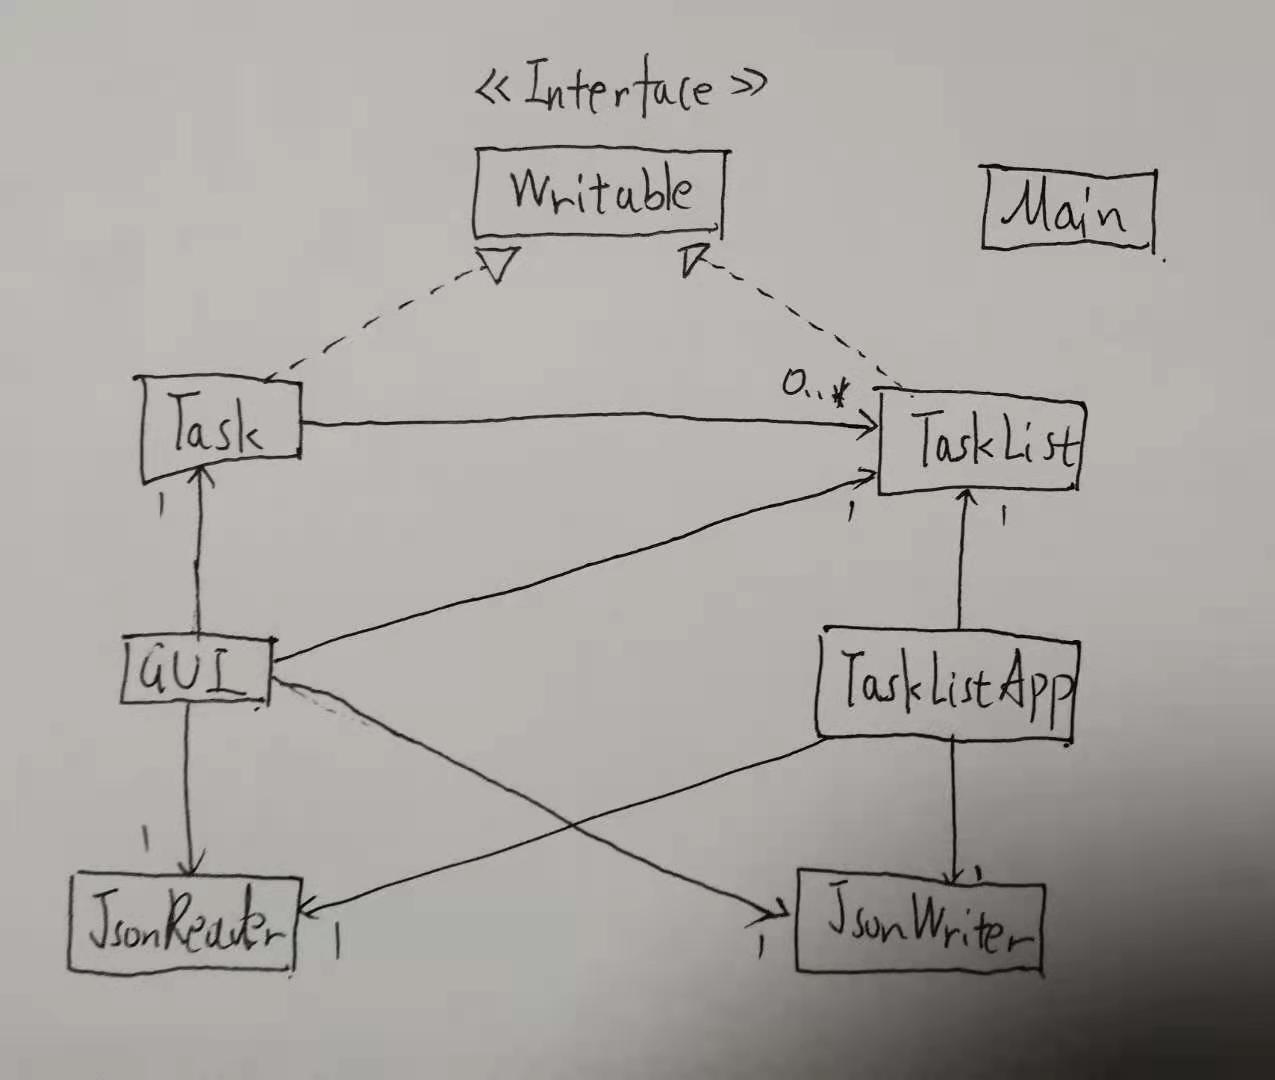 <<Interface>>
Writable
Main
Task
0..*
TaskList
1
1
1
GUI
TaskListApp
1
1
JsonReader
1
1
JsonWriter